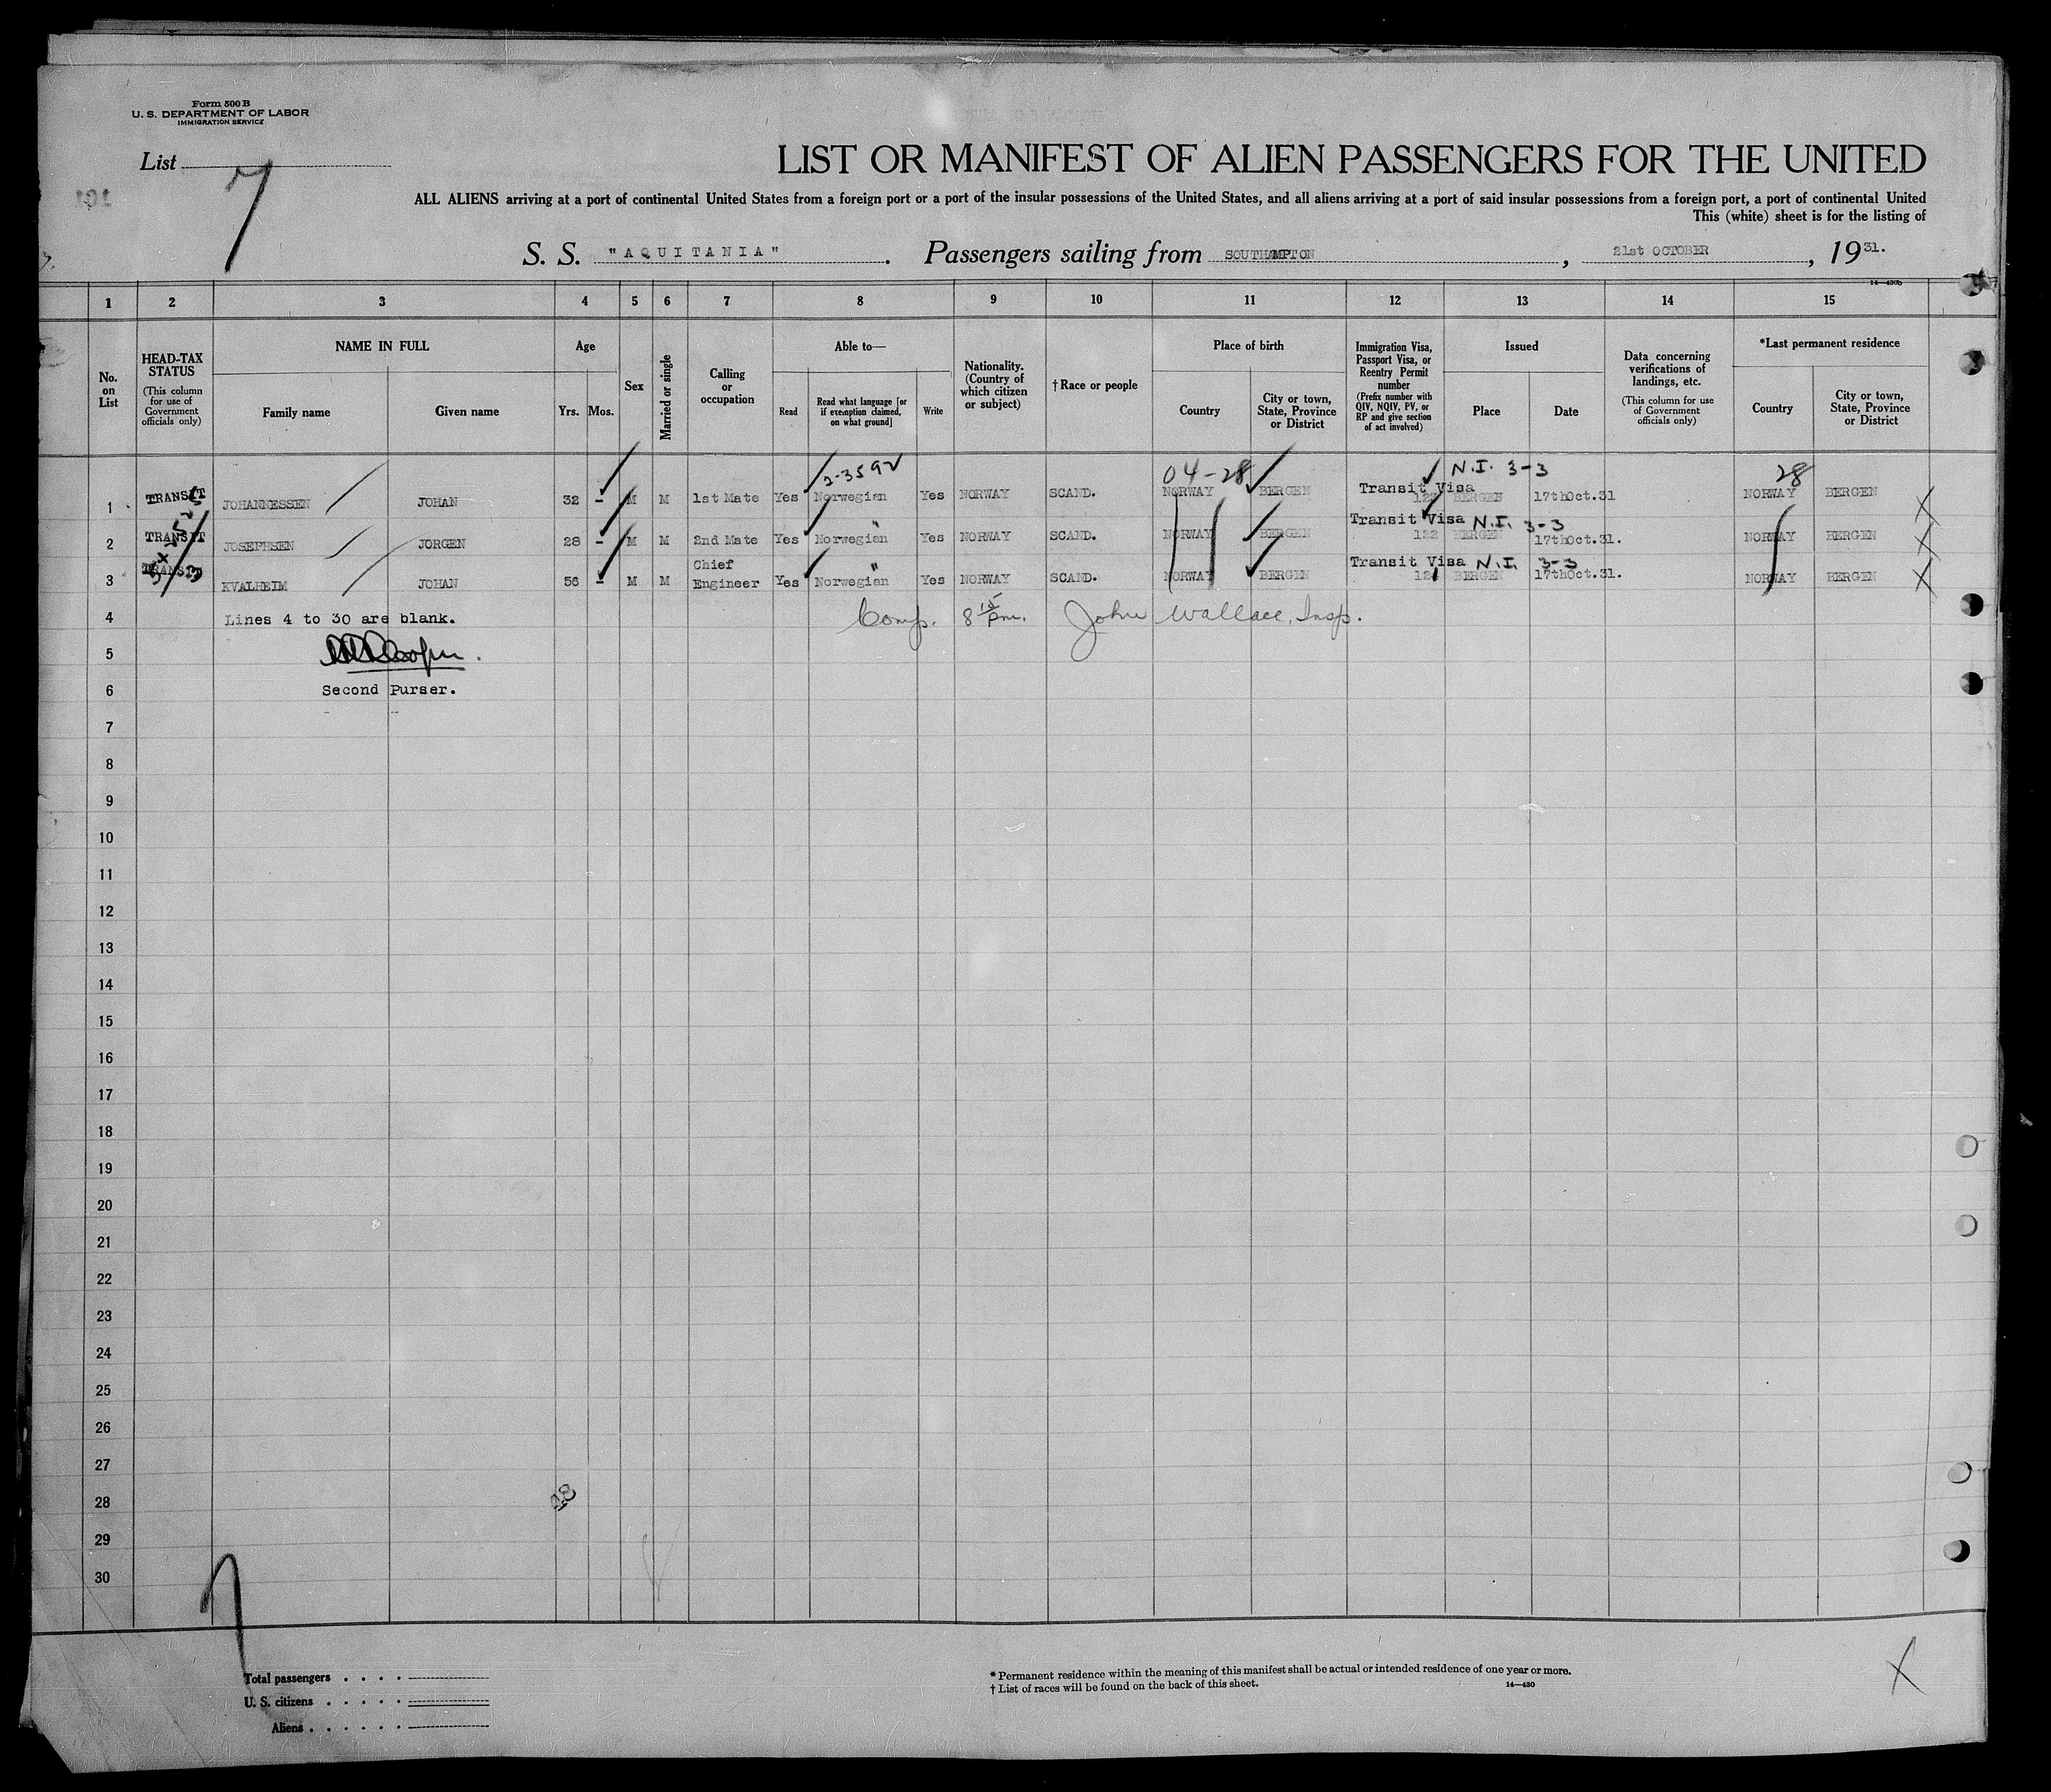 Form 500 B
U. S. DEPARTMENT OF LABOR
IMMIGRATION SERVICE
List 7
LIST OR MANIFEST OF ALIEN PASSENGERS FOR THE UNITED
ALL ALIENS arriving at a port of continental United States from a foreign port or a port of the insular possessions of the United States, and all aliens arriving at a port of said insular possessions from a foreign port, a port of continental United
This (white) sheet is for the listing of
S. S. "AQUITANIA". Passengers sailing from SOUTHAMPTON, 21st OCTOBER, 1931.
14—430b
1 2 3 4 5 6 7 8 9 10 11 12 13 14 15
No. on List
HEAD-TAX STATUS (This column for use of Government officials only)
NAME IN FULL
Family name
Given name
Age
Yrs. Mos.
Sex
Married or single
Calling or occupation
Able to—
Read
Read what language [or if exemption claimed, on what ground]
Write
Nationality. (Country of which citizen or subject)
†Race or people
Place of birth
Country
City or town, State, Province or District
Immigration Visa, Passport Visa, or Reentry Permit number (Prefix number with QIV, NQIV, PV, or RP and give section of act involved)
Issued
Place
Date
Data concerning verifications of landings, etc. (This column for use of Government officials only)
*Last permanent residence
Country
City or town, State, Province or District
04-28 N.I. 3-3 28
1 TRANSIT JOHANNESSEN JOHAN 32 - M M 1st Mate Yes Norwegian Yes NORWAY SCAND. NORWAY BERGEN Transit Visa BERGEN 17thOct.31 NORWAY BERGEN
2 TRANSIT JOSEPHSEN JORGEN 28 - M M 2nd Mate Yes Norwegian " Yes NORWAY SCAND. NORWAY BERGEN Transit Visa N.I. 3-3 122 BERGEN 17thOct.31. NORWAY BERGEN
3 TRANSIT KVALHEIM JOHAN 56 - M M Chief Engineer Yes Norwegian " Yes NORWAY SCAND. NORWAY BERGEN Transit Visa N.I. 3-3 BERGEN 17thOct.31. NORWAY BERGEN
4 Lines 4 to 30 are blank. Comp. 8 15 pm. John Wallace, Insp.
5
6 Second Purser.
7
8
9
10
11
12
13
14
15
16
17
18
19
20
21
22
23
24
25
26
27
28 48
29
30
Total passengers . . . .
U. S. citizens . . . . .
Aliens . . . . . .
* Permanent residence within the meaning of this manifest shall be actual or intended residence of one year or more.
† List of races will be found on the back of this sheet.
14—430